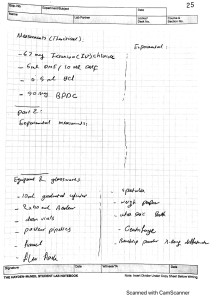 Exp. No.
Experiment/Subject
Date
25
Name
Lab Partner
Locker/
Desk No.
Course &
Section No.
Measurements (Theoretical):
Experimental:
- 67 mg Zirconium (IV) chloride
- 5 mL DMF / 10 mL DMF
- 0.5 mL HCl
- 90 mg BPDC
Part 2:
Experimental measurements:
Equipment & glassware
- 10 mL graduated cylinder
- 2x 50 mL beaker
- dram vials
- pasteur pipettes
- Funnel
- spatula
- weigh paper
- Centrifuge
- x-ray diffractometer
Signature
Date
Witness/TA
Date
THE HAYDEN-McNEIL STUDENT LAB NOTEBOOK
Note: Insert Divider Under Copy Sheet Before Writing
Scanned with CamScanner